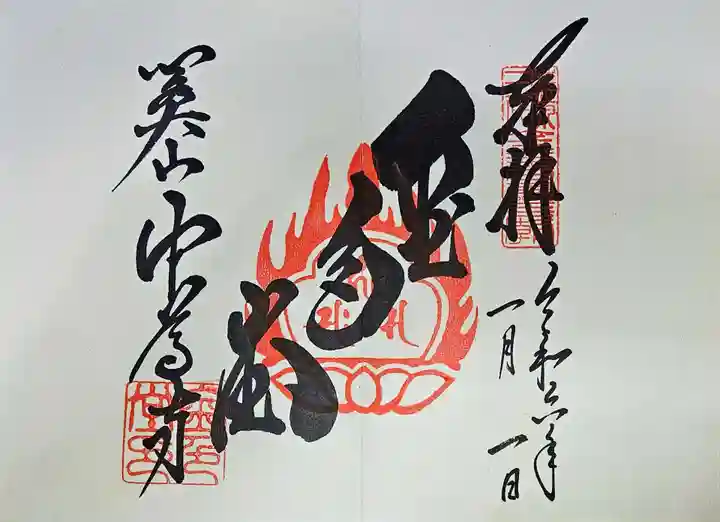 奉拝
令和六年
一月一日
金色堂
關山
中尊寺